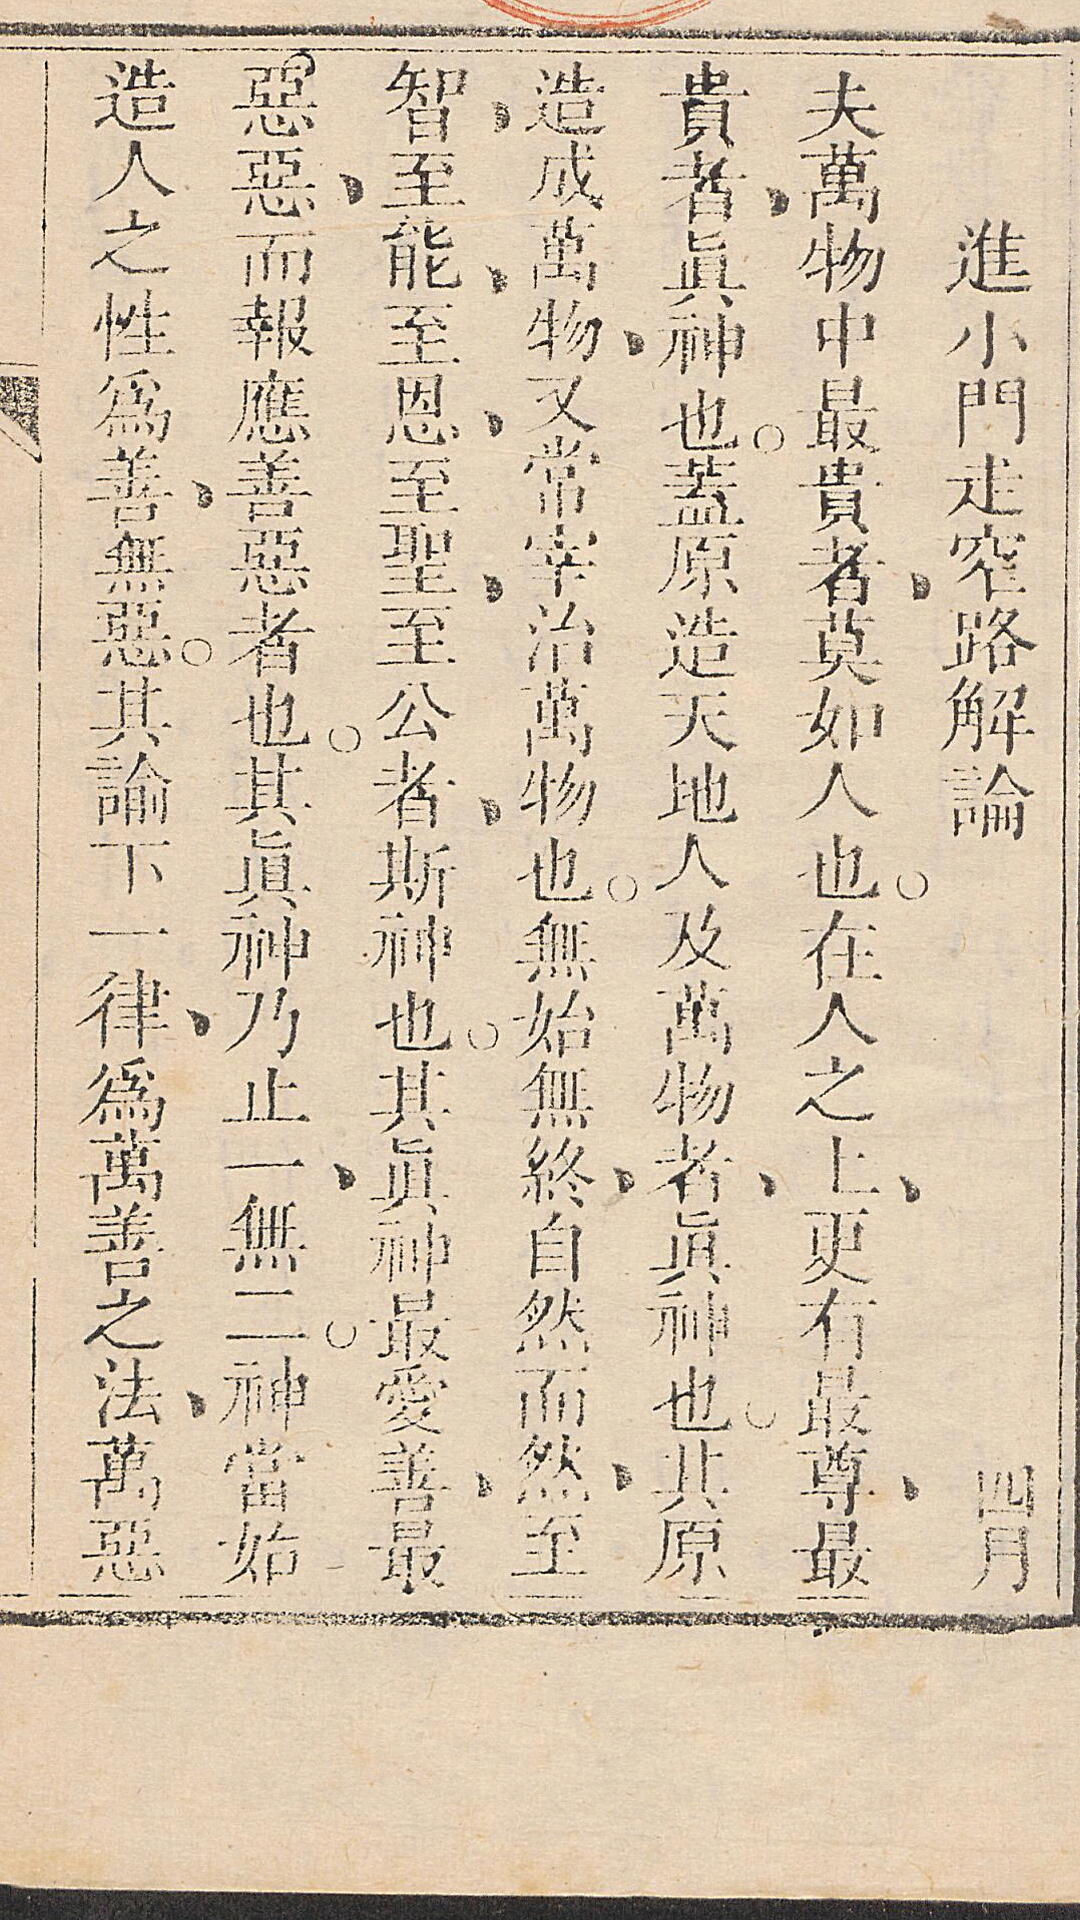 進小門走窄路解論 四月
夫萬物中最貴者、莫如人也。在人之上、更有最尊、最
貴者、眞神也。蓋原造天地人及萬物者、眞神也。其原
造成萬物、又常宰治萬物也。無始無終、自然而然、至
智、至能、至恩、至聖、至公者、斯神也。其眞神最愛善、最
惡惡、而報應善惡者也。其眞神乃止一、無二神。當始
造人之性爲善、無惡。其諭下一律、爲萬善之法、萬惡